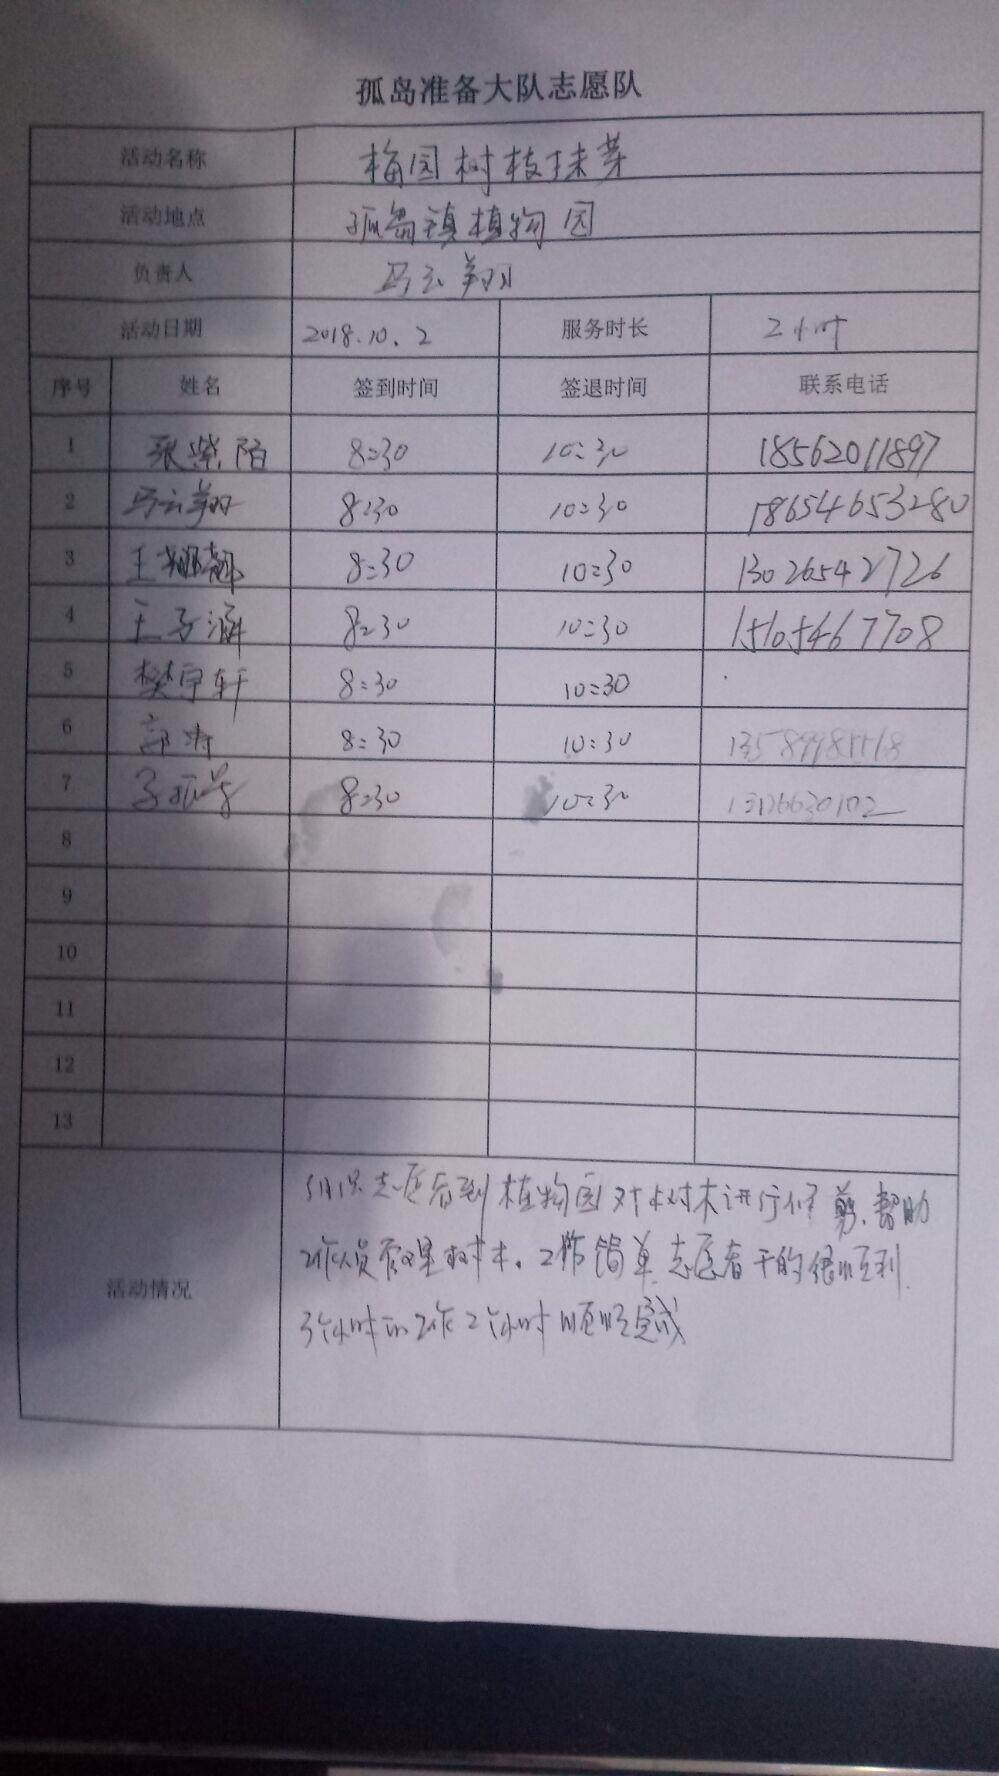 孤岛准备大队志愿队
活动名称 梅园树枝抹芽
活动地点 孤岛镇植物园
负责人 马云翔
活动日期 2018.10.2 服务时长 2小时
序号 姓名 签到时间 签退时间 联系电话
1 张紫陌 8:30 10:30 18562011897
2 马云翔 8:30 10:30 18654653280
3 王翩翩 8:30 10:30 13026542726
4 王子涵 8:30 10:30 15105467708
5 樊宇轩 8:30 10:30
6 郭涛 8:30 10:30
7 8:30 10:30
8
9
10
11
12
13
组织志愿者到植物园对树木进行修剪，帮助
活动情况 工作人员管理树木。工作简单，志愿者干的很顺利，
3个小时的工作2个小时顺顺完成